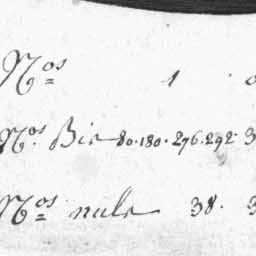 Nos 1
Nos. Bis 80.180.276.292. 3
Nos nuls 38. 3